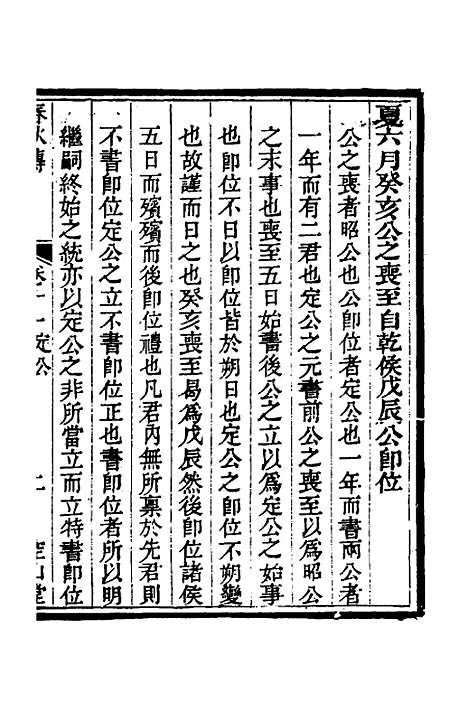 夏六月癸亥公之喪至自乾侯戊辰公卽位
公之喪者昭公也公卽位者定公也一年而書兩公者
一年而有二君也定公之元書前公之喪至以爲昭公
之末事也喪至五日始書後公之立以爲定公之始事
也卽位不日以卽位皆於朔日也定公之卽位不朔變
也故謹而日之也癸亥喪至曷爲戊辰然後卽位諸侯
五日而殯殯而後卽位禮也凡君內無所稟於先君則
不書卽位定公之立不書卽位正也書卽位者所以明
繼嗣終始之統亦以定公之非所當立而立特書卽位
春秋傳
卷十一定公
二
空山堂